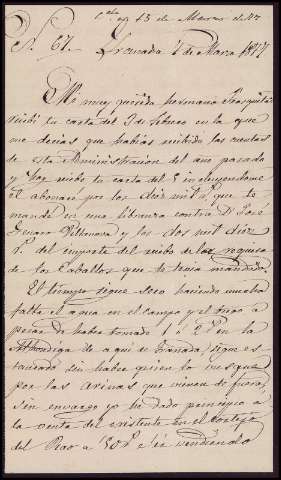 cda el 15 de Marzo de 77
N. 67. Granada 7 de Marzo 1877
Mi muy querida hermana
recibi tu carta del 3 de Febrero en la que
me decias que habias recibido las cuentas
de esta Administracion del año pasado
y hoy recibo tu carta del 5 incluyendome
el abonare por los diez mil rs. que te
mandé en una libranza contra Dn José
Genaro Villanova y los dos mil diez
rs. del importe del recibo de la requisa
de los Caballos que te tenia mandado.
El tiempo sigue seco haciendo mucha
falta el agua en el campo y el trigo a
pesar de haber tomado 1 ó 2 rs. en la
Alhondiga de aqui de Granada, sigue es-
tancado sin haber quien lo busque
por las arinas que vienen de fuera,
sin envargo yo he dado principio a
la venta del existente en el cortijo
del Rao a 50 rs. e iré vendiendo